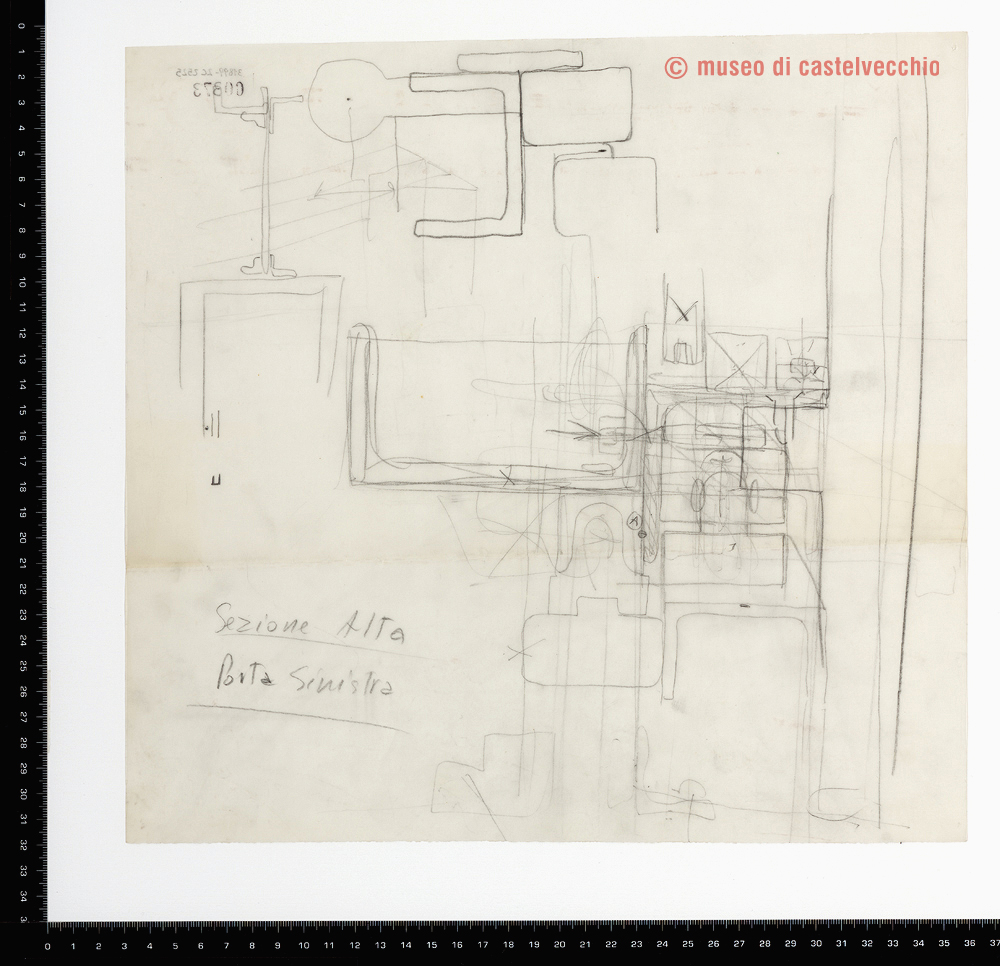 © museo di castelvecchio
Sezione Alta
Porta Sinistra
A
0
1
2
3
4
5
6
7
8
9
10
11
12
13
14
15
16
17
18
19
20
21
22
23
24
25
26
27
28
29
30
31
32
33
34
0 1 2 3 4 5 6 7 8 9 10 11 12 13 14 15 16 17 18 19 20 21 22 23 24 25 26 27 28 29 30 31 32 33 34 35 36 37